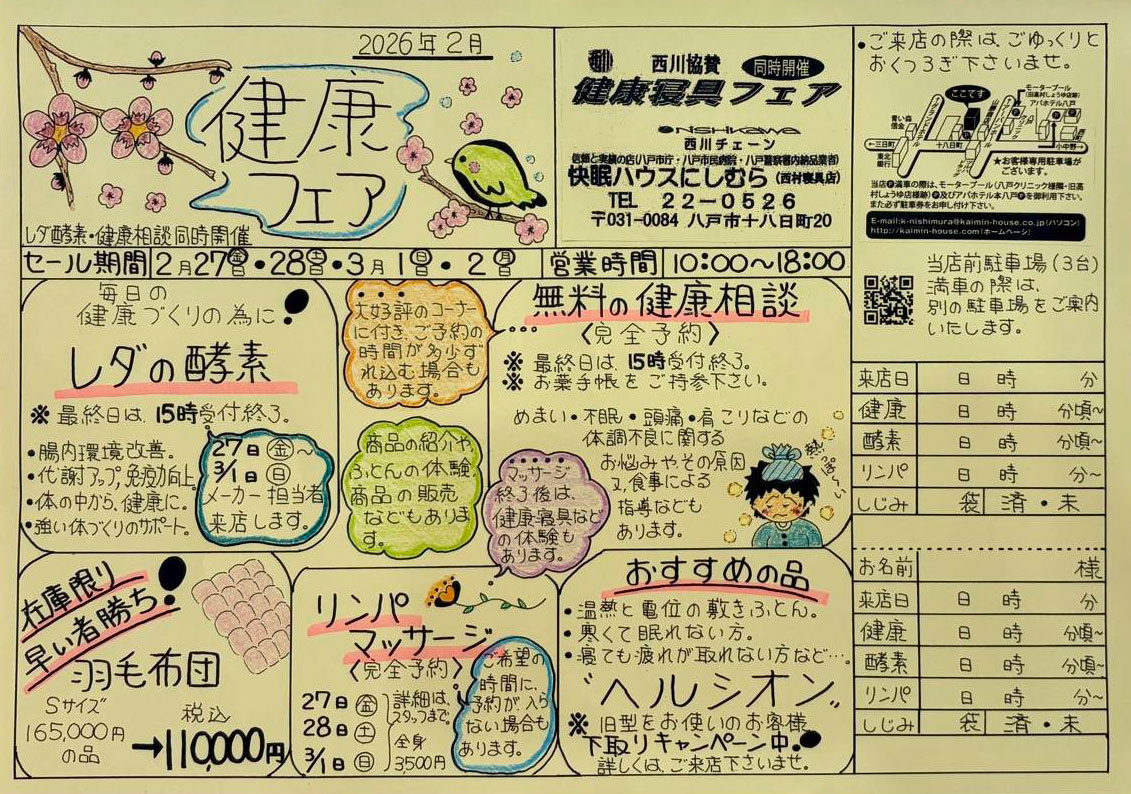 2026年2月
健康
フェア
レダ酵素・健康相談同時開催
西川協賛
同時開催
健康寝具フェア
nishikawa
西川チェーン
信頼と実績の店(八戸市庁・八戸市民病院・八戸警察署内納品業者)
快眠ハウスにしむら(西村寝具店)
TEL 22-0526
〒031-0084 八戸市十八日町20
・ご来店の際は、ごゆっくりと
おくつろぎ下さいませ。
ここです
モータープール
(旧高村しょうゆ店様)
アパホテル八戸
青い森
信金
←三日町
東北
銀行
十八日町
小中野→
★お客様専用駐車場が
ございます。
当店P満車の際は、モータープール(八戸クリニック様隣・旧高
村しょうゆ店様跡)P及びアパホテル本八戸Pを御利用下さい。
また必ず駐車券をお申し付け下さい。
E-mail:k-nishimura@kaimin-house.co.jp(パソコン)
http://kaimin-house.com(ホームページ)
セール期間
2月27日(金)・28日(土)・3月1日(日)・2日(月)
営業時間
10:00〜18:00
当店前駐車場(3台)
満車の際は、
別の駐車場をご案内
いたします。
毎日の
健康づくりの為に!
レダの酵素
※最終日は、15時受付終了。
・腸内環境改善。
・代謝アップ,免疫力向上。
・体の中から、健康に。
・強い体づくりのサポート。
27日(金)〜
3/1日(日)
メーカー担当者
来店します。
大好評のコーナー
に付き、ご予約の
時間が多少ず
れ込む場合も
あります。
商品の紹介や
ふとんの体験
商品の販売
などもありま
す。
無料の健康相談
〈完全予約〉
※最終日は、15時受付終了。
※お薬手帳をご持参下さい。
めまい・不眠・頭痛・肩こりなどの
体調不良に関する
お悩みや、その原因
又、食事による
指導なども
あります。
熱っぽい〜
マッサージ
終了後は、
健康寝具など
の体験も
あります。
在庫限り
早い者勝ち!
羽毛布団
Sサイズ
165,000円
の品
税込
→110,000円
リンパ
マッサージ
〈完全予約〉
27日(金)
28日(土)
3/1日(日)
詳細は、
スタッフまで。
全身
3,500円
ご希望の
時間に、
予約が入ら
ない場合も
あります。
おすすめの品
・温熱と電位の敷きふとん。
・寒くて眠れない方。
・寝ても疲れが取れない方など…。
"ヘルシオン"
※旧型をお使いのお客様、
下取りキャンペーン中!
詳しくは、ご来店下さいませ。
来店日 日 時 分
健康 日 時 分頃〜
酵素 日 時 分頃〜
リンパ 日 時 分〜
しじみ 袋 済・未
お名前 様
来店日 日 時 分
健康 日 時 分頃〜
酵素 日 時 分頃〜
リンパ 日 時 分〜
しじみ 袋 済・未